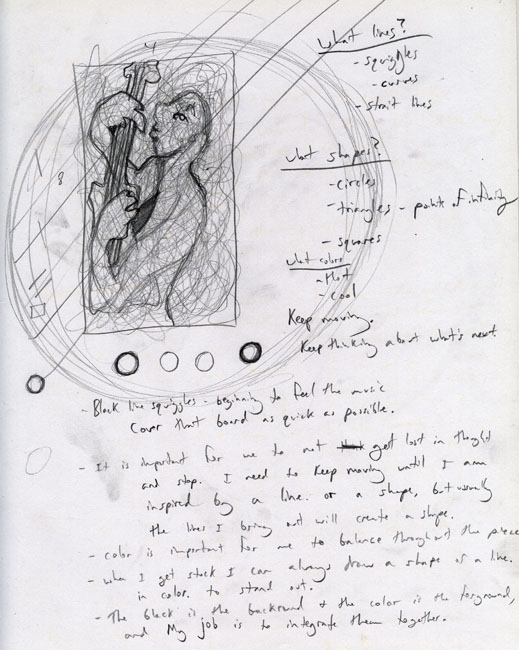 what lines?
- squiggles
- curves
- strait lines
what shapes?
- circles
- triangles - points of infinity
- squares
what colors
- Hot
- cool
Keep moving.
Keep thinking about what's next.
4
8
- Black line squiggles - beginning to feel the music
Cover that board as quick as possible.
- It is important for me to not get lost in thought
and stop. I need to keep moving until I am
inspired by a line. or a shape, but usually
the lines I bring out will create a shape.
- color is important for me to balance throughout the piece
- when I get stuck I can always draw a shape or a line.
in color. to stand out.
- The black is the backround & the color is the forground,
and My job is to integrate them together.